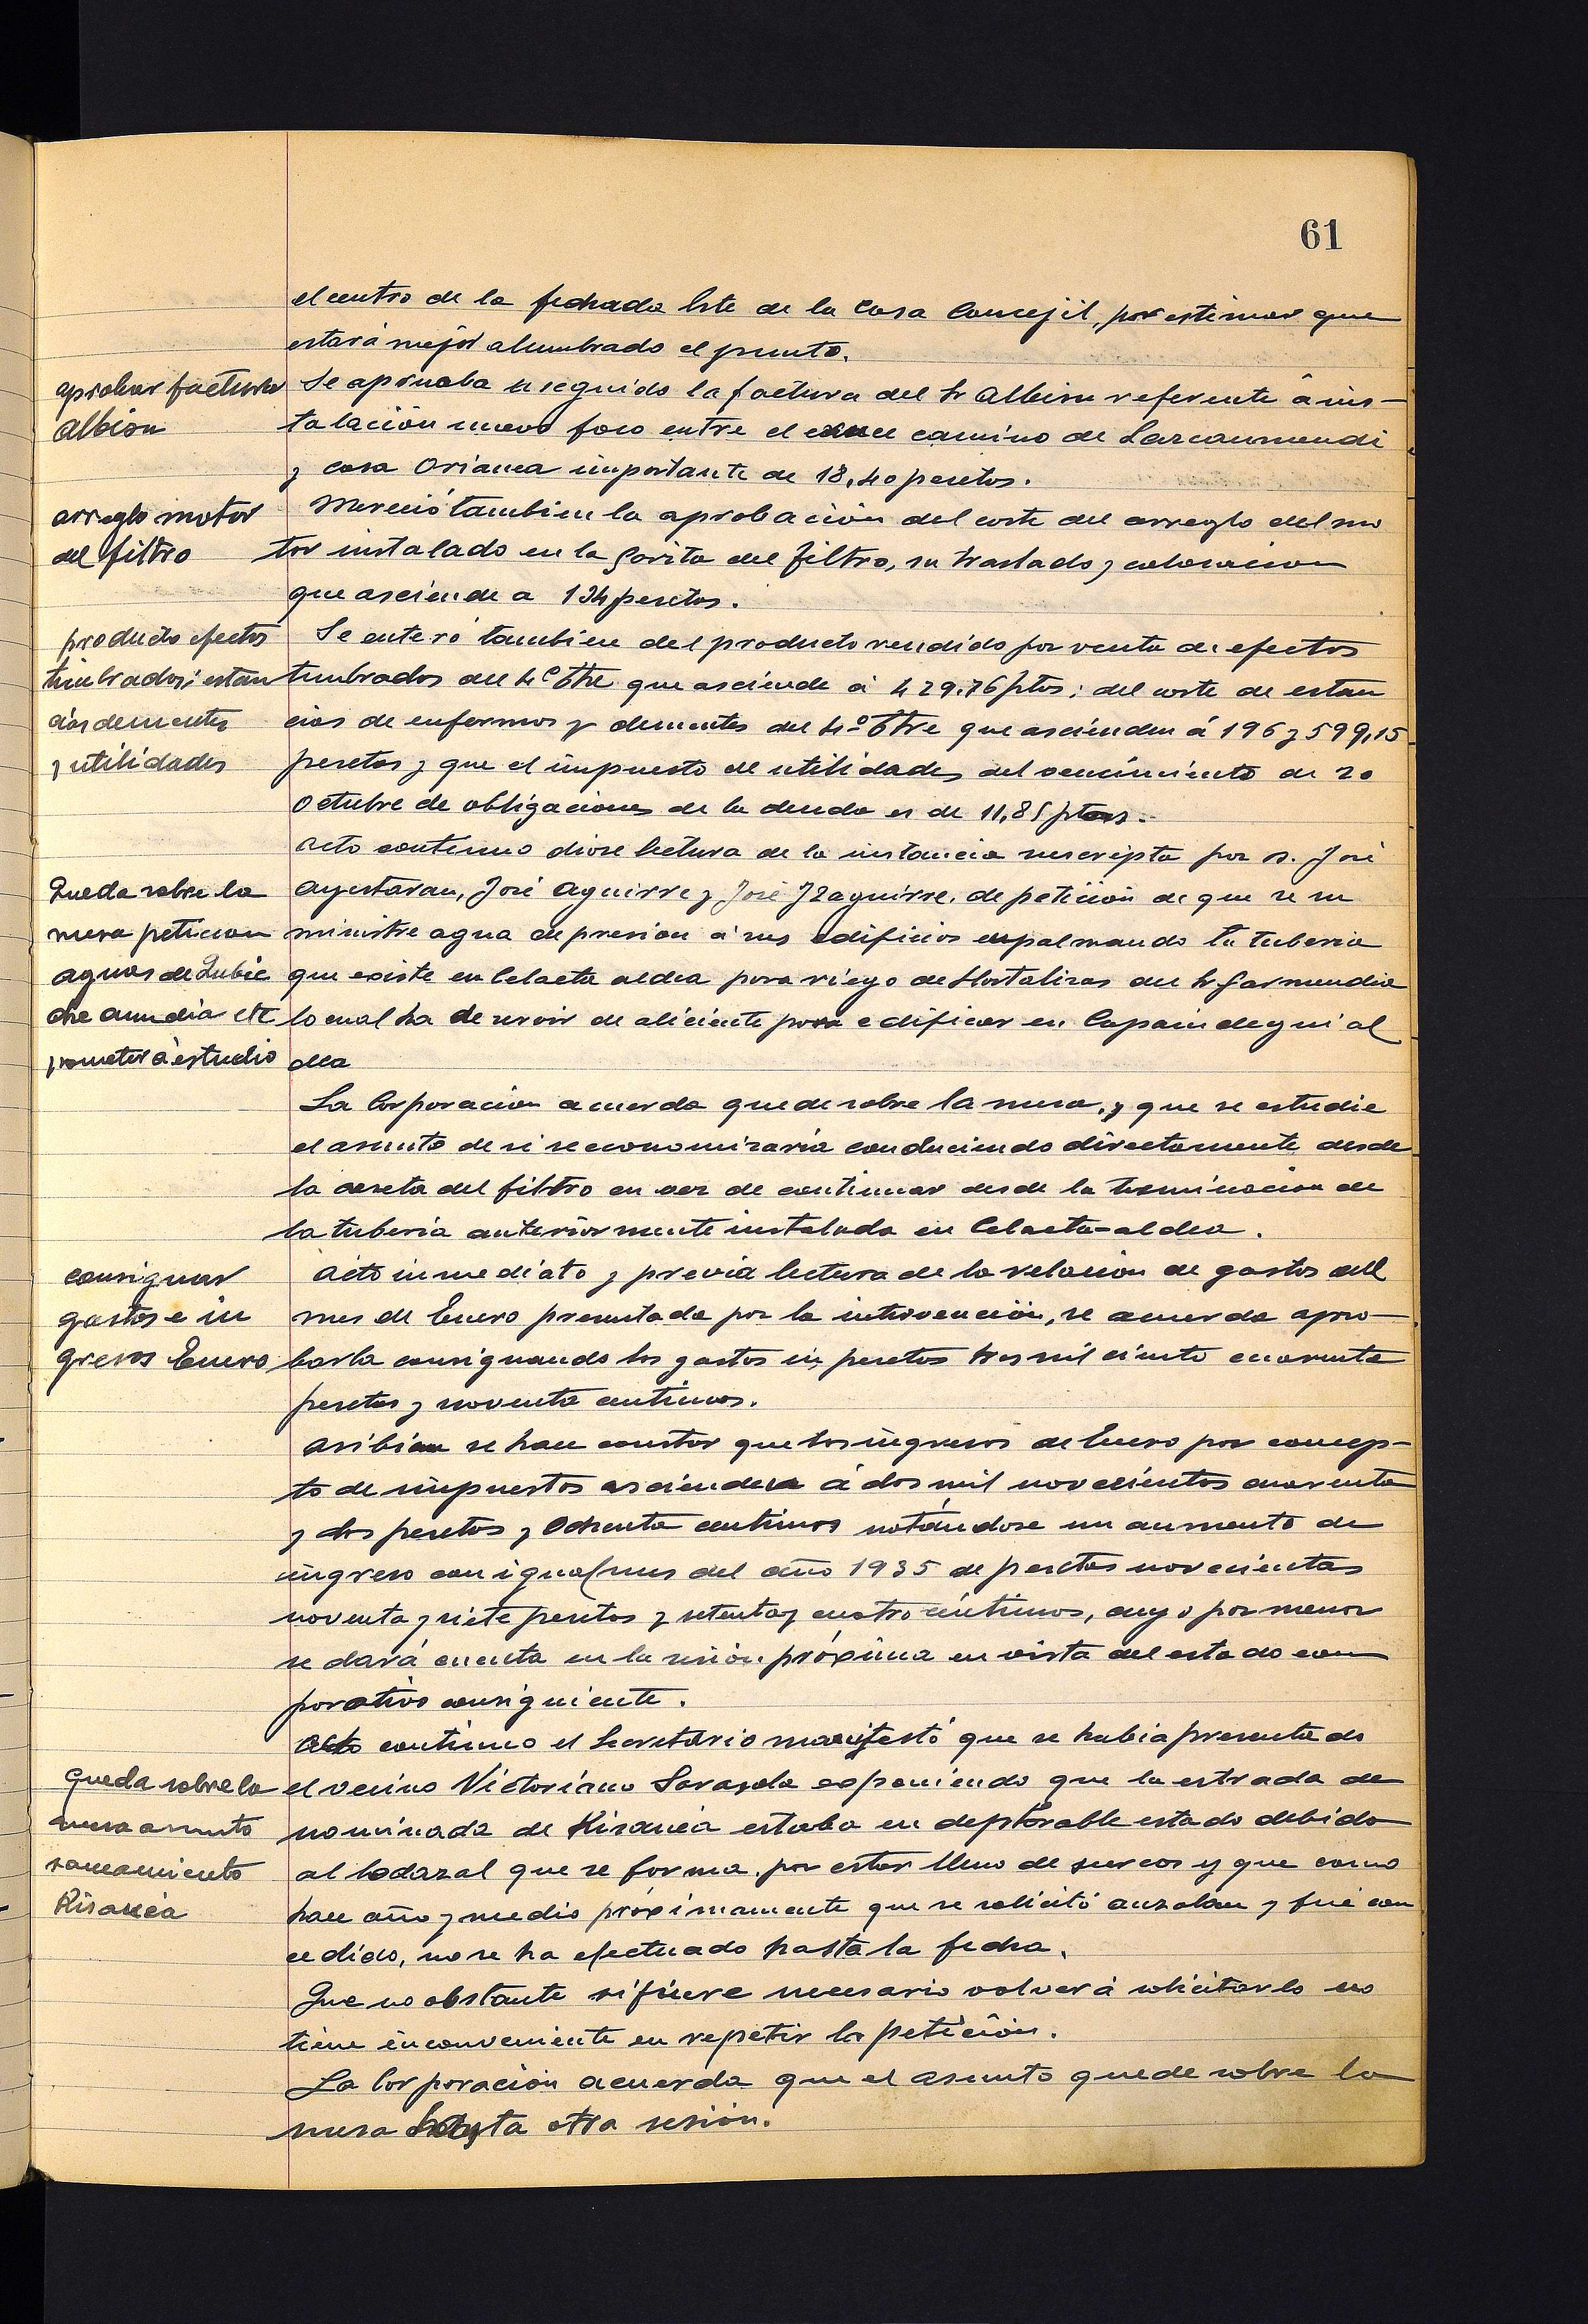 61
el centro de la fachada Este de la Casa Concejil, por estimar que
estará mejor alumbrado el punto.
aprobar factura
Albisu
Se aprueba enseguido la factura del Sr Albisu referente á ins-
talación nuevo foco entre el cruce camino de Lazcanmendi
y casa Orianea importante de 18,40 pesetas.
arreglo motor
del filtro
Mereció tambien la aprobación del coste del arreglo del mo
tor instalado en la Garita del filtro, su traslado y colocacion
que asciende a 134 pesetas.
producto efectos
timbrados; estan
cias dementes
y utilidades
Se enteró tambien del producto rendido por venta de efectos
timbrados del 4º Tre que asciende á 429,76 ptas; del coste de estan
cias de enfermos y dementes del 4º Tre que ascienden á 196 y 599,15
pesetas y que el impuesto de utilidades del vencimiento de 20
Octubre de obligaciones de la deuda es de 11,85 ptas.
Queda sobre la
mesa peticion
aguas de
y someter á estudio
Acto continuo diose lectura de la instancia suscripta por D. José
Ayestaran, José Aguirre y José Yzaguirre, de petición de que se su
ministre agua de presion á sus edificios empalmando la tuberia
que existe en Celaeta aldea para riego de Hortalizas del Sr. Garmendia
lo cual ha de servir de aliciente para edificar en Capaindegui al
dea
La Corporacion acuerda quede sobre la mesa, y que se estudie
el asunto de si se economizaria conduciendo directamente desde
la caseta del filtro en vez de continuar desde la terminacion de
la tuberia anteriormente instalada en Celaeta-aldea.
consignar
gastos e in
gresos Enero
Acto inmediato y previa lectura de la relacion de gastos del
mes de Enero presentada por la intervención, se acuerda apro-
barla consignando los gastos en pesetas tres mil ciento cuarenta
pesetas y noventa centimos.
Asibien se hace constar que los ingresos de Enero por concep-
to de impuestos asciende á dos mil novecientos cuarenta
y dos pesetas y Ochenta centimos notándose un aumento de
ingreso con igual mes del año 1935 de pesetas novecientas
noventa y siete pesetas y setenta y cuatro céntimos, cuyo pormenor
se dará cuenta en la sesión próxima en vista del estado com
parativo consiguiente.
Queda sobre la
mesa asunto
saneamiento
Kisanea
Acto continuo el Secretario manifestó que se habia presentado
el vecino Victoriano Sarasola exponiendo que la estrada de
nominada de Kisanea estaba en deplorable estado debido
al lodazal que se forma por estar lleno de surcos y que como
hace año y medio próximamente que se solicitó auzolan y fué con
cedido, no se ha efectuado hasta la fecha.
Que no obstante si fuere necesario volver á solicitarlo no
tiene inconveniente en repetir la petición.
La Corporación acuerda que el asunto quede sobre la
mesa hasta otra sesión.